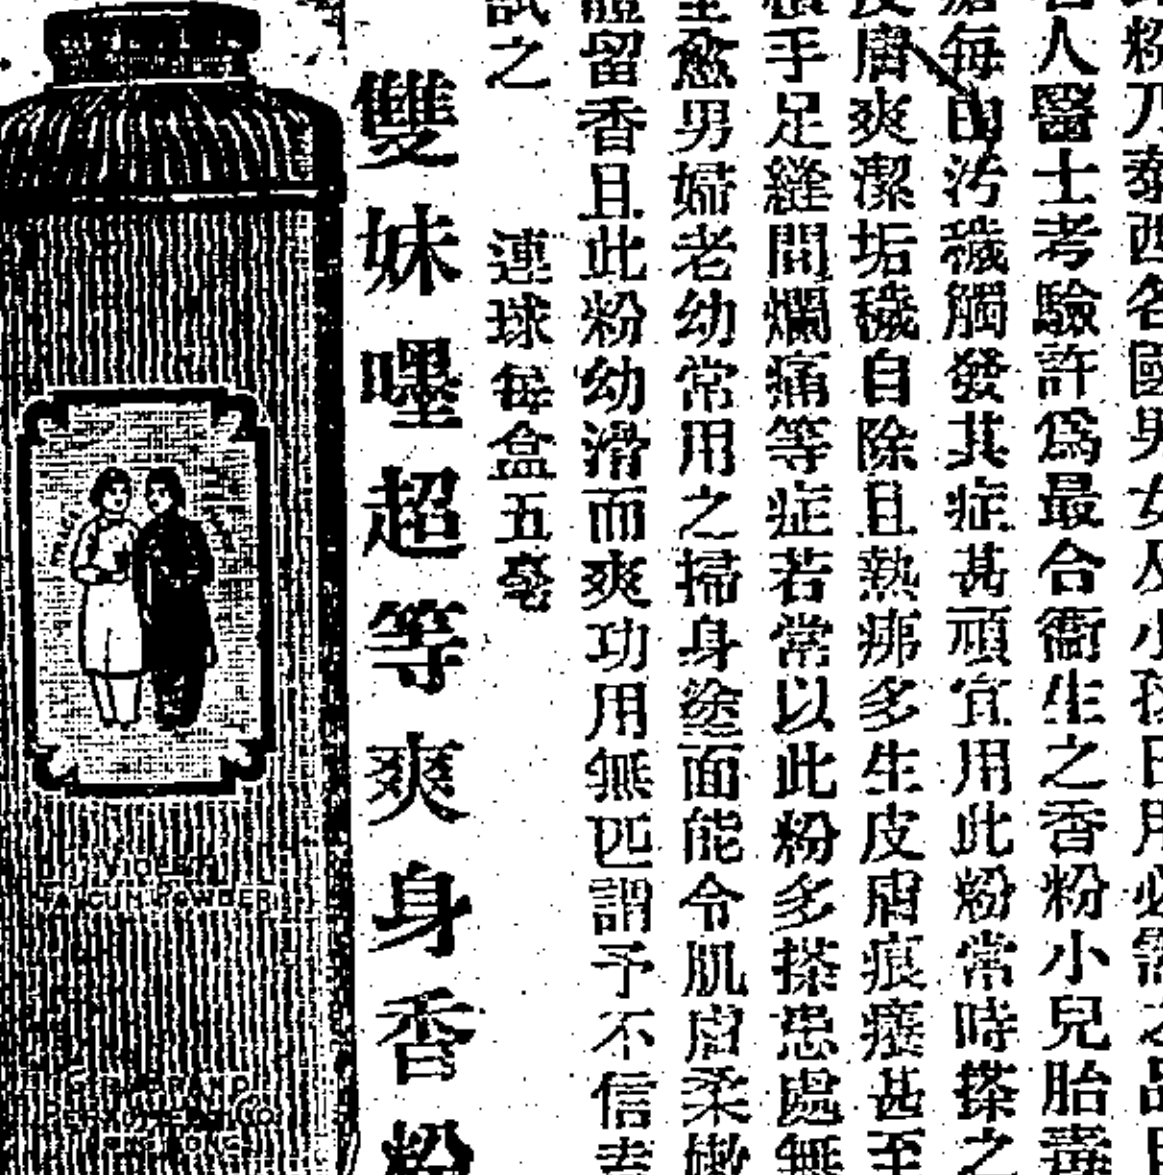 粉乃泰西各國男女及小孩日用必需之品
名人醫士考驗許為最合衞生之香粉小兒胎毒
瘡每由汚穢觸發其症甚頑宜用此粉常時搽之
皮膚爽潔垢穢自除且熱痱多生皮膚痕癢甚至
手足縫間爛痛等症若常以此粉多搽患處無
愈男婦老幼常用之掃身塗面能令肌膚柔嫩
體留香且此粉幼滑而爽功用無匹謂予不信者
試之 連球每盒五毫
雙妹嚜超等爽身香粉
TALCUM POWDER